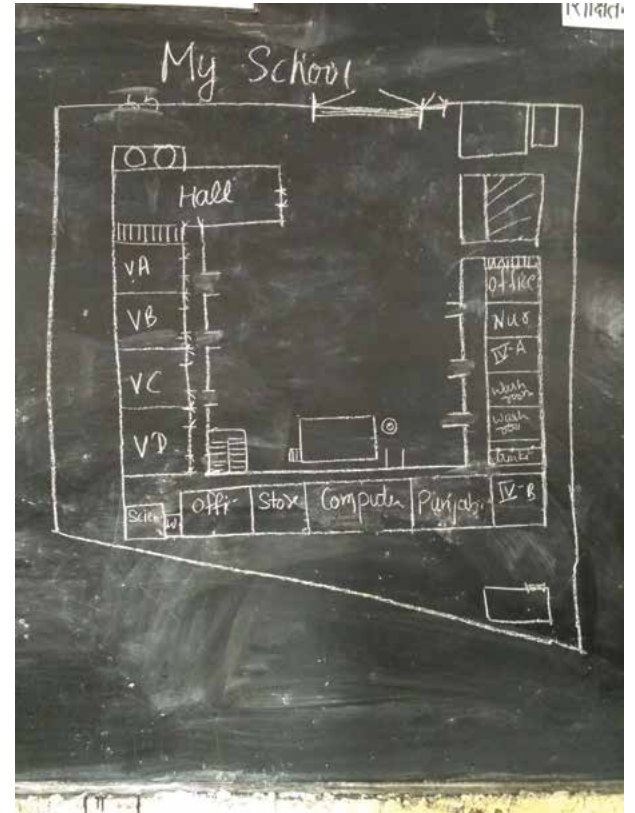 My School
Hall
VA
VB
VC
VD
Scien
Offi
Store
Computer
Punjabi
IV-B
Office
Nur
IV-A
Wash
room
Wash